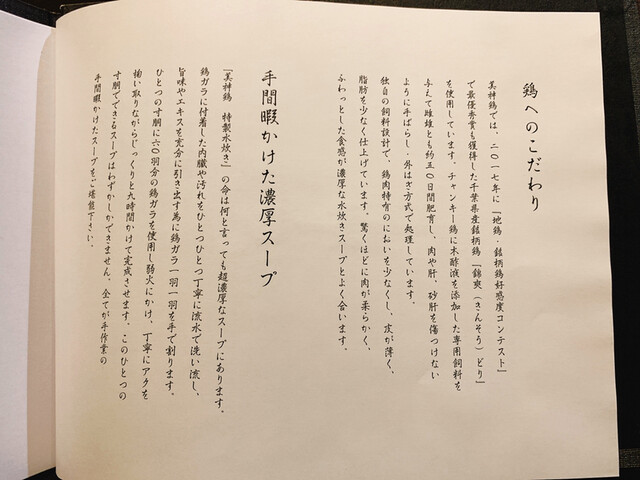 鶏へのこだわり
美神鶏では、二〇一七年に「地鶏・銘柄鶏好感度コンテスト」
で最優秀賞も獲得した千葉県産銘柄鶏「錦爽（きんそう）どり」
を使用しています。チャンキー鶏に木酢液を添加した専用飼料を
与えて雌雄とも約五〇日間肥育し、肉や肝、砂肝を傷つけない
ように手ばらし・外はぎ方式で処理しています。
独自の飼料設計で、鶏肉特有のにおいを少なくし、皮が薄く、
脂肪を少なく仕上げています。驚くほどに肉が柔らかく、
ふわっとした食感が濃厚な水炊きスープとよく合います。
手間暇かけた濃厚スープ
『美神鶏　特製水炊き』の命は何と言っても超濃厚なスープにあります。
鶏ガラに付着した内臓や汚れをひとつひとつ丁寧に流水で洗い流し、
旨味やエキスを充分に引き出す為に鶏ガラ一羽一羽を手で割ります。
ひとつの寸胴に六〇羽分の鶏ガラを使用し弱火にかけ、丁寧にアクを
掬い取りながらじっくりと九時間かけて完成させます。このひとつの
寸胴でできるスープはわずかしかできません。全てが手作業の
手間暇かけたスープをご堪能下さい。